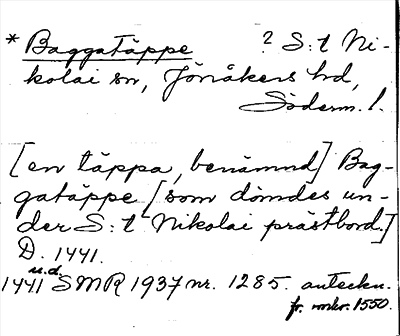 * Baggatäppe ? S:t Ni-
kolai sn, Jönåkers hd,
Söderm. l.
[en täppa, benämnd] Bag-
gatäppe [som dömdes un-
der S:t Nikolai prästbord.]
D. 1441.
1441 u.d. SMR 1937 nr. 1285. anteckn.
fr. omkr. 1550.